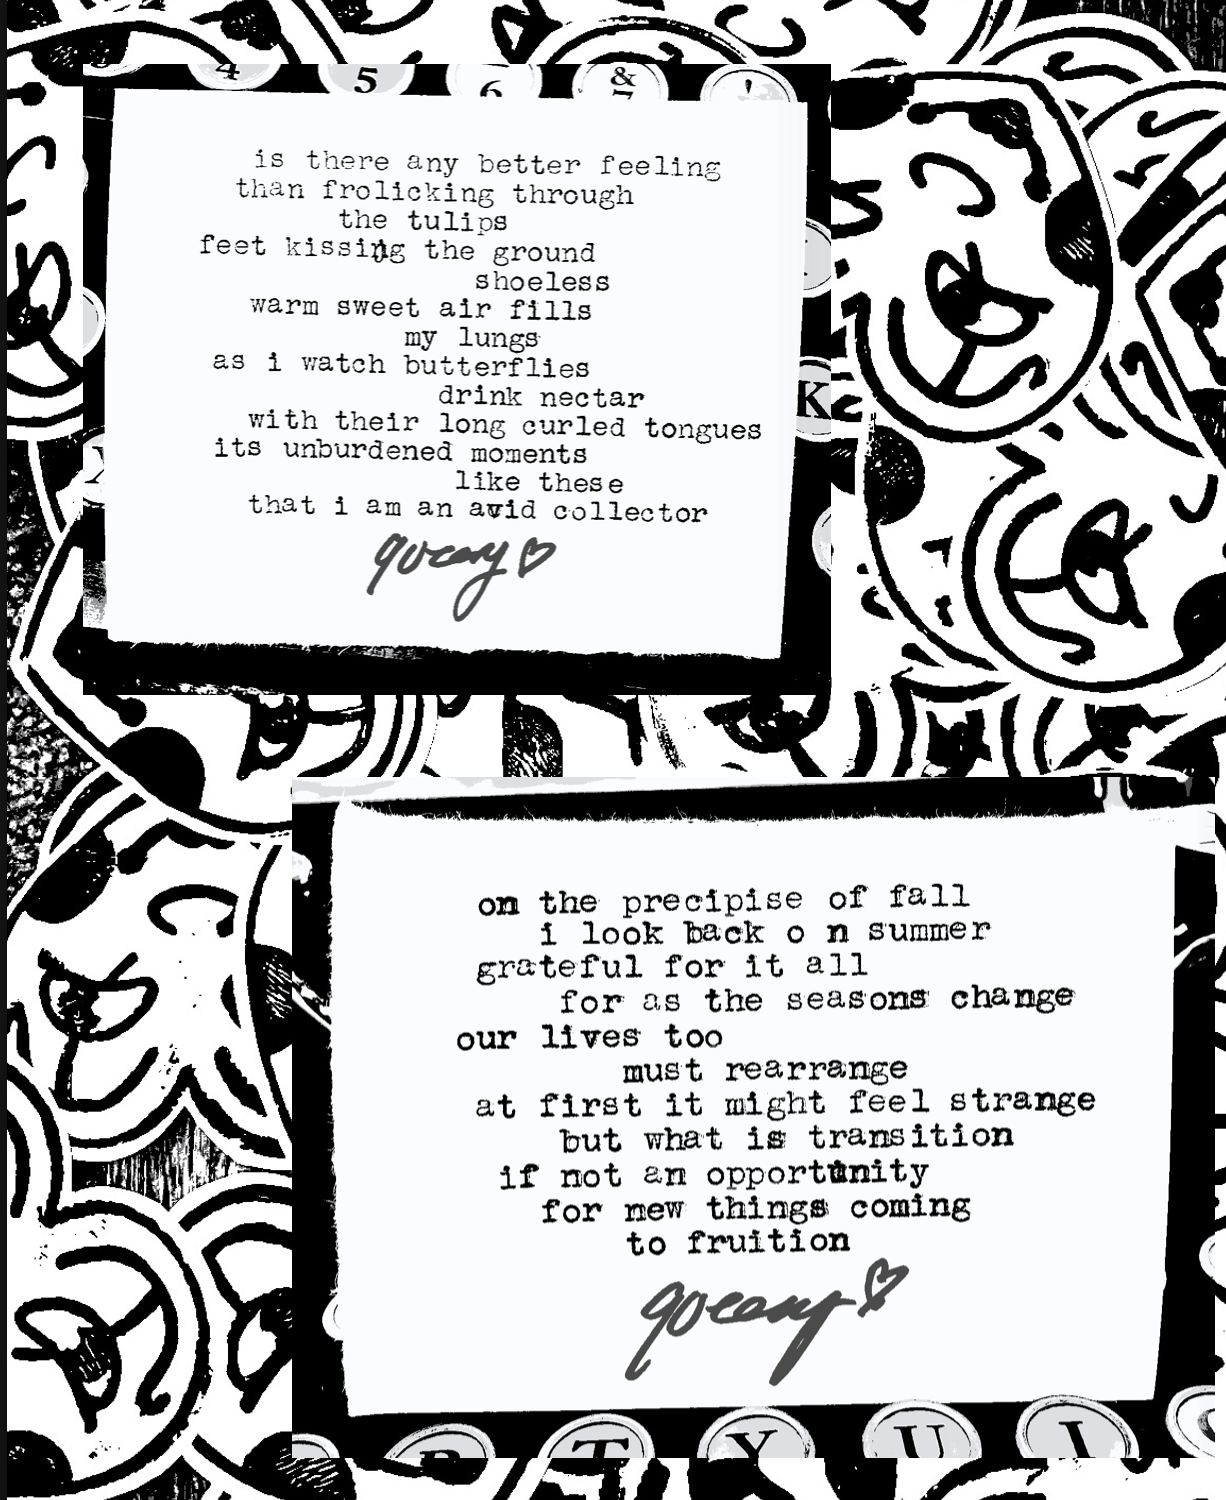 4 5 6 & 7 '
is there any better feeling
than frolicking through
the tulips
feet kissing the ground
shoeless
warm sweet air fills
my lungs
as i watch butterflies
drink nectar
with their long curled tongues
its unburdened moments
like these
that i am an avid collector
goeasy
K
on the precipise of fall
i look back o n summer
grateful for it all
for as the seasons change
our lives too
must rearrange
at first it might feel strange
but what is transition
if not an opportunity
for new things coming
to fruition
goeasy
R T Y U I